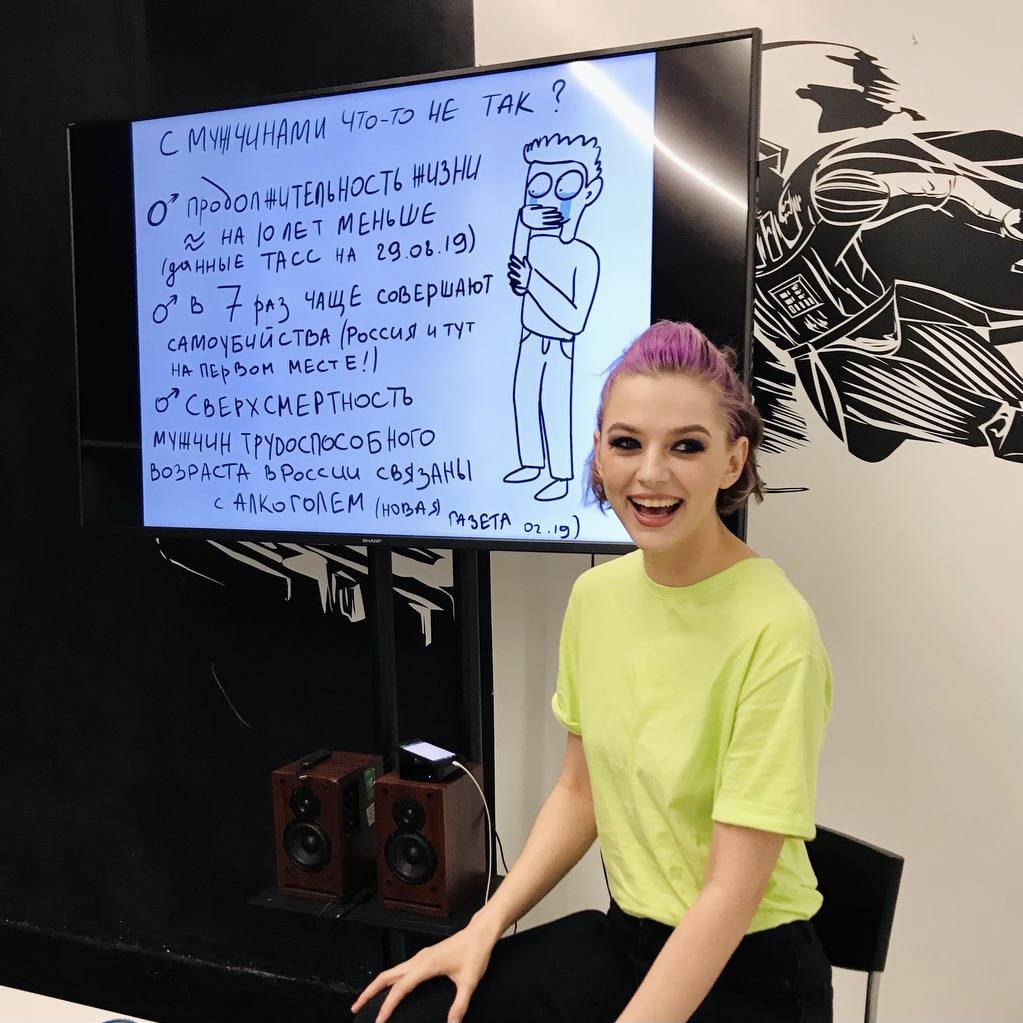 С МУЖЧИНАМИ ЧТО-ТО НЕ ТАК?
♂ ПРОДОЛЖИТЕЛЬНОСТЬ ЖИЗНИ
≈ НА 10 ЛЕТ МЕНЬШЕ
(ДАННЫЕ ТАСС НА 29.08.19)
♂ В 7 РАЗ ЧАЩЕ СОВЕРШАЮТ
САМОУБИЙСТВА (РОССИЯ И ТУТ
НА ПЕРВОМ МЕСТЕ!)
♂ СВЕРХСМЕРТНОСТЬ
МУЖЧИН ТРУДОСПОСОБНОГО
ВОЗРАСТА В РОССИИ СВЯЗАНЫ
С АЛКОГОЛЕМ (НОВАЯ ГАЗЕТА 02.19)
SHARP